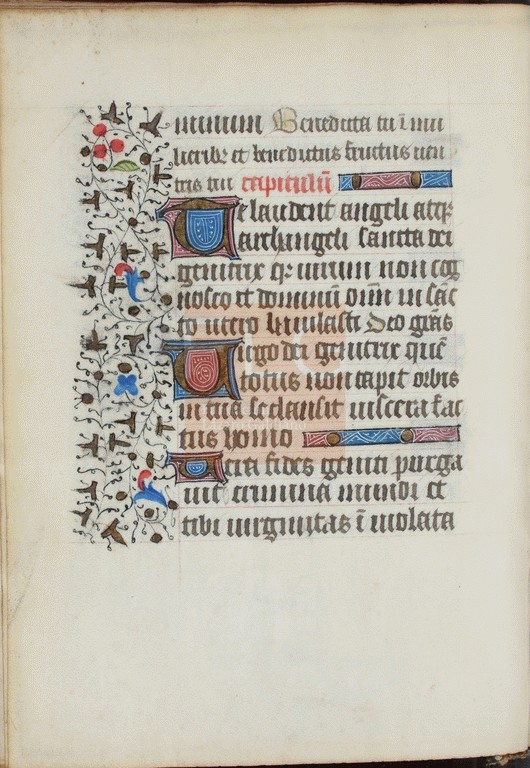 minum Benedicta tu ī mu
lieribꝫ et benedictus fructus uen
tris tui capitulū
Te laudent angeli atqꝫ
archangeli sancta dei
genitrix qꝛ uirum non cog
nosco et dominū om̄ in sāc
to utero baiulasti Deo grās
Uirgo dei genitrix quē
totus non capit orbis
in tua se clausit uiscera fac
tus homo
Uera fides geniti purga
uit crimina mundi et
tibi uirginitas ī uiolata